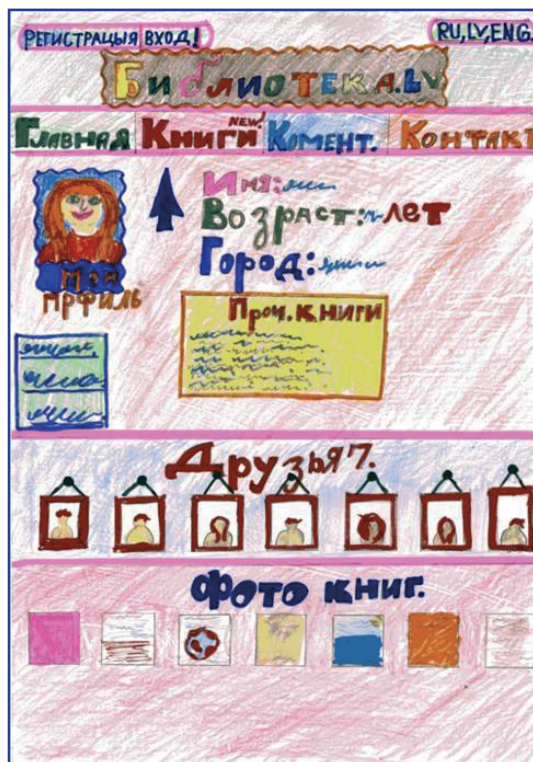 РЕГИСТРАЦЫЯ ВХОД!
RU,LV,ENG.
БИБЛИОТЕКА.LV
ГЛАВНАЯ
КНИГИ NEW!
КОМЕНТ.
КОНТАКТ
Имя:
Возраст: лет
Город:
Мой
мрфиль
Проч. книги
Друзья 7.
Фото книг.